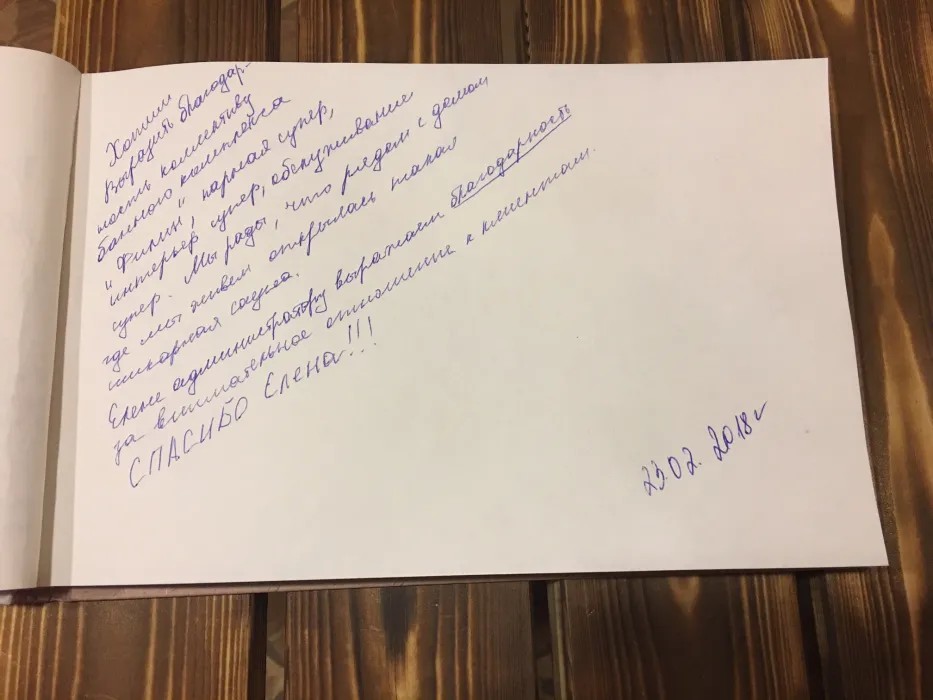 Хотим
Выразить благодар-
ность коллективу
банного комплекса
"Филин", парная супер,
интерьер супер, обслуживание
супер. Мы рады, что рядом с домом,
где мы живем открылась такая
шикарная сауна.
Елене администратору выражаем благодарность
за внимательное отношение к клиентам.
СПАСИБО Елена!!!
23.02.2018г